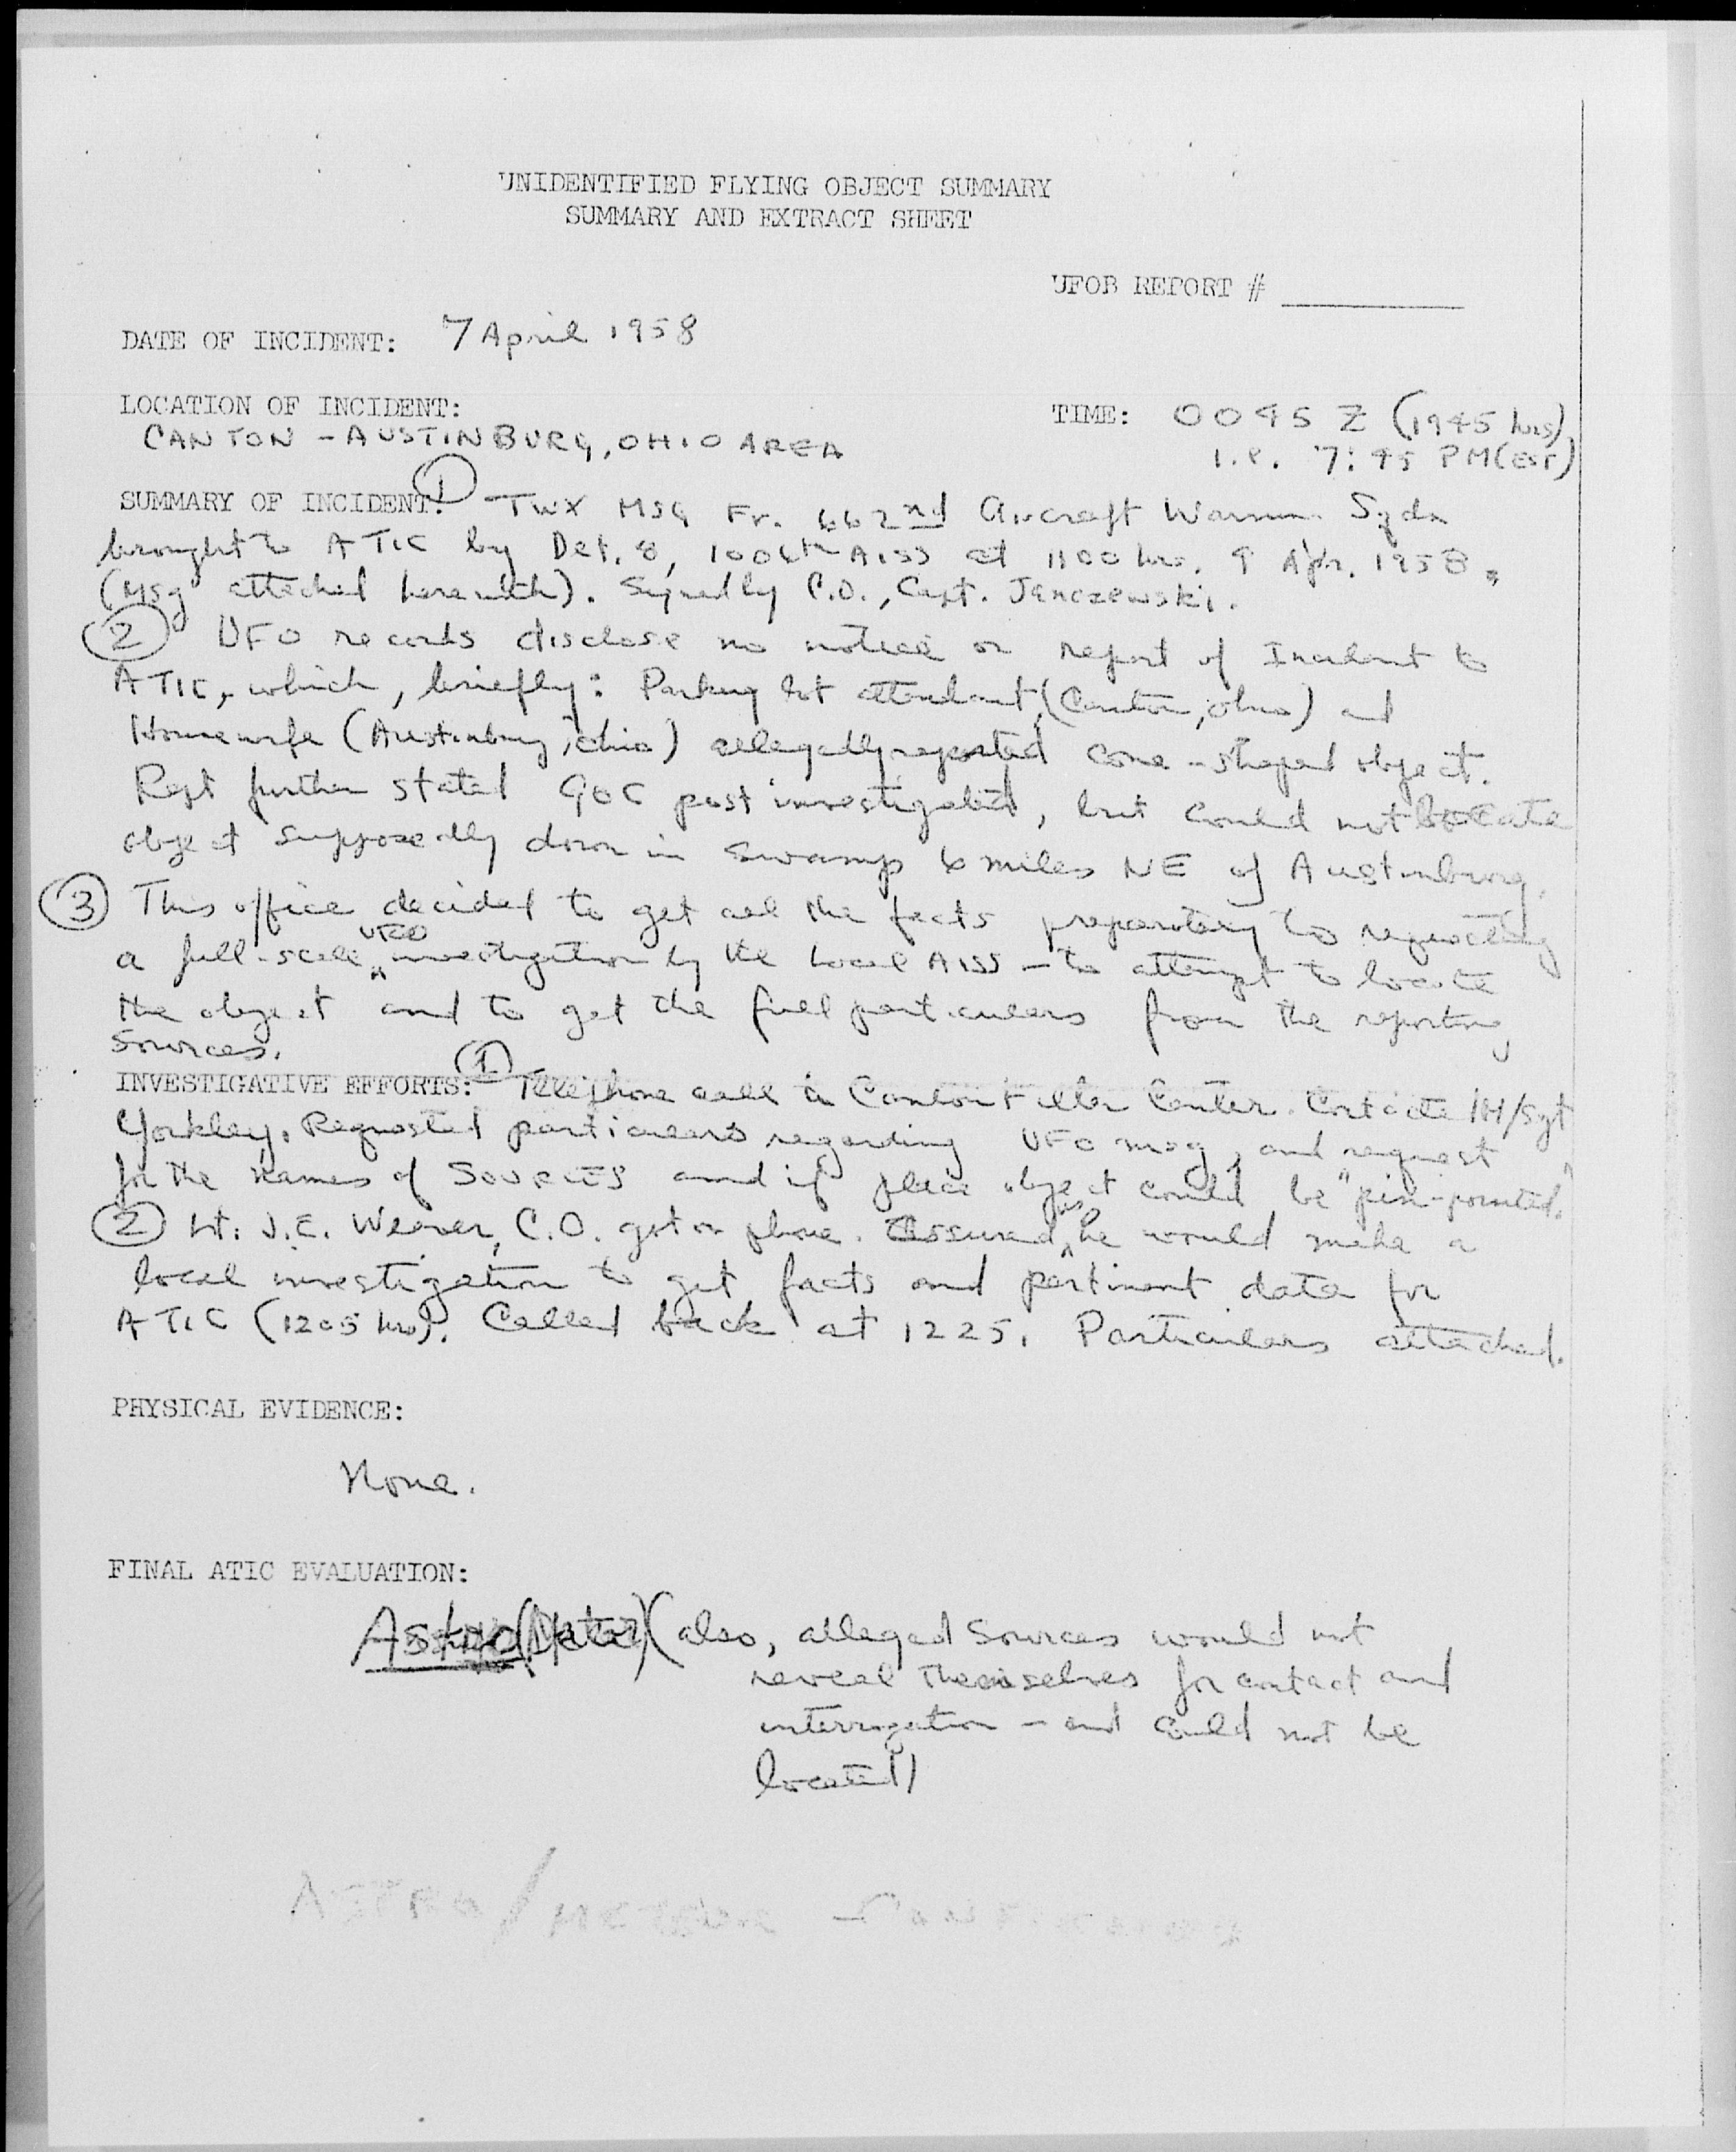 UNIDENTIFIED FLYING OBJECT SUMMARY
SUMMARY AND EXTRACT SHEET
UFOB REPORT #
DATE OF INCIDENT: 7 April 1958
LOCATION OF INCIDENT:
CANTON - AUSTINBURG, OHIO AREA
TIME: 0045 Z (1945 hrs)
i.e. 7:45 PM (EST)
SUMMARY OF INCIDENT: ① TWX MSG Fr. 662nd Aircraft Sqdn
brought to ATIC by Det. 8, 1006th AISS at 1100 hrs. 9 Apr. 1958.
(MSg attached herewith). Signed by C.O., Capt. Janczewski.
② UFO records disclose no notice or report of Incident to
ATIC, which, briefly: Parking lot attendant, (Canton, Ohio) and
Housewife (Austinburg, Ohio) allegedly reported cone-shaped object.
Rept further stated GOC post investigated, but could not locate
object supposedly down in swamp 6 miles NE of Austinburg.
③ This office decided to get all the facts preparatory to requesting
a full-scale UFO investigation by the local AISS - to attempt to locate
the object and to get the full particulars from the reporting
sources.
INVESTIGATIVE EFFORTS: ① Telephone call to Canton Filter Center. M/Sgt
Yorkley. Requested particulars regarding UFO msg, and request
for the names of SOURCES and if place object could be "pin-pointed."
② Lt. J.E. Weaver, C.O. got on phone. Assured us he would make a
local investigation to get facts and pertinent data for
ATIC (1205 hrs). Called back at 1225. Particulars attached.
PHYSICAL EVIDENCE:
None.
FINAL ATIC EVALUATION:
Astro (Meteor) (also, alleged Sources would not
reveal themselves for contact and
interrogation - and could not be
located)
ASTRO/METEOR